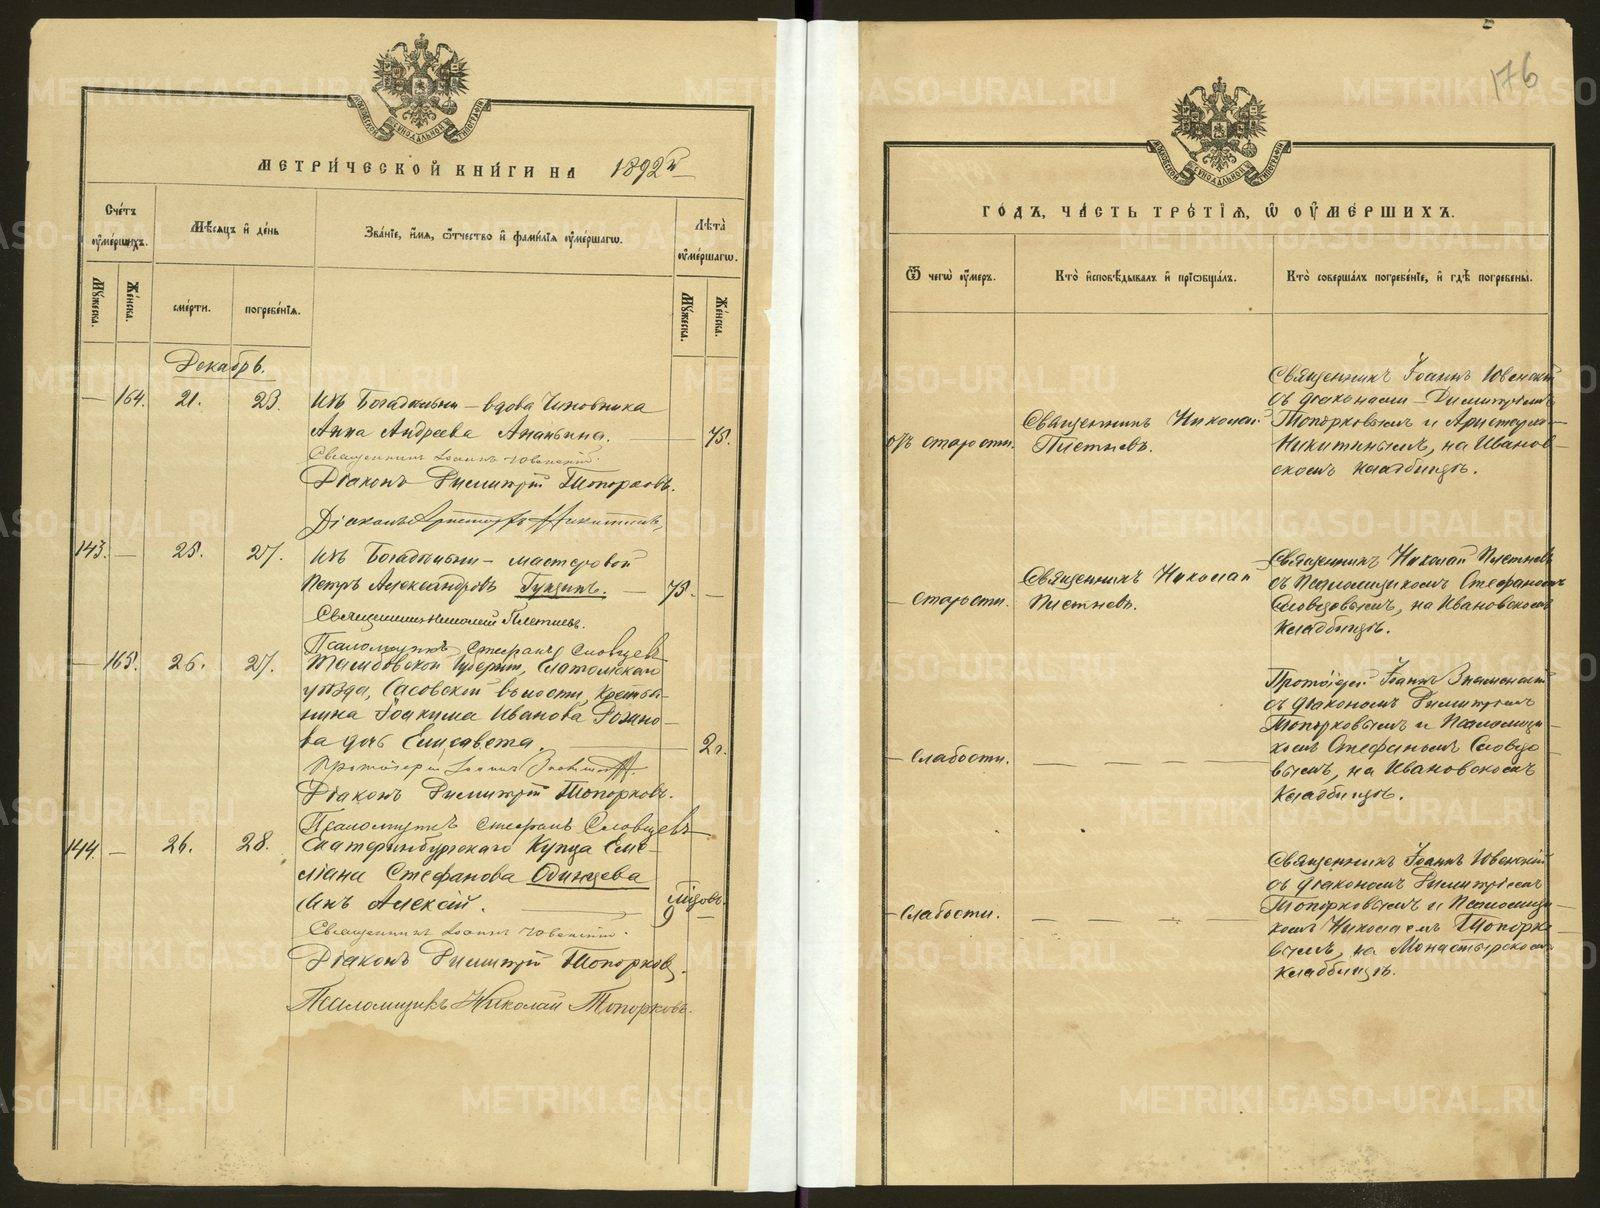 МЕТРИ́ЧЕСКОЙ КНИ́ГИ НА 1892й
Сче́тъ ᲂу҆ме́ршихъ.
Мѣ́сяцъ и҆ де́нь
Зва́нїе, и҆́мя, ѻ҆́тчество и҆ фами́лїя ᲂу҆ме́ршагѡ.
Лѣта̀ ᲂу҆ме́ршагѡ.
Мꙋжеска.
Же́нска.
сме́рти.
погребе́нїя.
Мꙋжеска.
Же́нска.
Декабрь.
— 164. 21. 23. Изъ Богадельни – вдова Чиновника
Анна Андреева Ананьина. — 75.
Священникъ Іоаннъ Ювенскій.
Діаконъ Димитрій Топорковъ.
Діаконъ Аристархъ Никитинъ
143. — 25. 27. Изъ Богадельни – мастеровой
Петръ Александровъ Гущинъ. — 73. —
Священникъ Николай Плетневъ.
Псаломщикъ Стефанъ Словцевъ
— 165. 26. 27. Тамбовской Губерніи, Елатомскаго
уѣзда, Сасовской волости, крестья-
нина Іоакима Иванова Розано-
ва дочь Елисавета. — 2 г.
Протоіерей Іоаннъ Знаменскій
Діаконъ Димитрій Топорковъ.
Псаломщикъ Стефанъ Словцевъ
144. — 26. 28. Екатеринбургскаго Купца Еме-
ліана Стефанова Одинцева
сынъ Алексій. — 9 —
Священникъ Іоаннъ Ювенскій.
Діаконъ Димитрій Топорковъ.
Псаломщикъ Николай Топорковъ.
176
ГО́ДЪ, ЧА́СТЬ ТРЕ́ТЇЯ, Ѡ҆ ОУ҆МЕ́РШИХЪ.
Ѿ чегѡ̀ ᲂу҆́меръ.
Кто̀ и҆сповѣ́дывалъ и҆ прїѡбща́лъ.
Кто̀ соверша́лъ погребе́нїе, и҆ гдѣ̀ погребены̀.
отъ старости.
Священникъ Николай
Плетневъ.
Священникъ Іоаннъ Ювенскій
съ діаконами – Димитріемъ
Топорковымъ и Аристархо-
Никитинымъ, на Иванов-
скомъ кладбищѣ.
— старости.
Священникъ Николай
Плетневъ.
Священникъ Николай Плетневъ
съ Псаломщикомъ Стефаномъ
Словцовымъ, на Ивановскомъ
кладбищѣ.
— слабости. — — — —
Протоіерей Іоаннъ Знаменскій
съ діакономъ Димитріемъ
Топорковымъ и Псаломщи-
комъ Стефаномъ Словцо
вымъ, на Ивановскомъ
кладбищѣ.
— слабости. — — — —
Священникъ Іоаннъ Ювенскій
съ діакономъ Димитріемъ
Топорковымъ и Псаломщи-
комъ Николаемъ Топорко-
вымъ, на Монастырскомъ
кладбищѣ.
METRIKI.GASO-URAL.RU